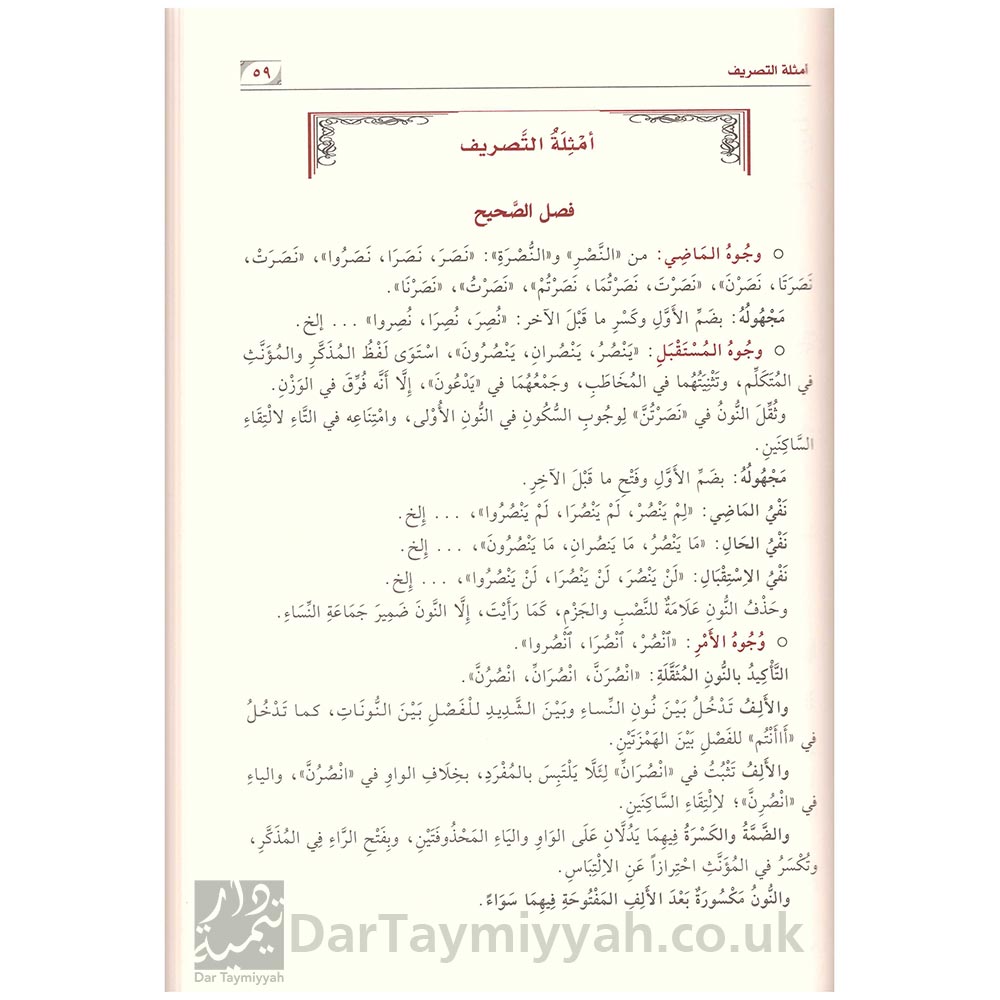 أمثلة التصريف
٥٩
أمْثِلَةُ التَّصريف
فصل الصَّحيح
○ وجُوهُ المَاضِي: من «النَّصْرِ» و«النُّصْرَةِ»: «نَصَرَ، نَصَرَا، نَصَرُوا»، «نَصَرَتْ،
نَصَرَتَا، نَصَرْنَ»، «نَصَرْتَ، نَصَرْتُمَا، نَصَرْتُمْ»، «نَصَرْتُ»، «نَصَرْنَا».
مَجْهُولُهُ: بضَمِّ الأوَّلِ وكَسْرِ ما قَبْلَ الآخر: «نُصِرَ، نُصِرَا، نُصِروا» ... إلخ.
○ وجُوهُ المُسْتَقْبَلِ: «يَنْصُرُ، يَنْصُرانِ، يَنْصُرُونَ»، اسْتَوَى لَفْظُ المُذَكَّرِ والمُؤَنَّثِ
في المُتَكَلِّمِ، وتَثْنِيَتُهُما في المُخَاطَبِ، وجَمْعُهُمَا في «يَدْعُونَ»، إلَّا أنَّه فُرِّقَ في الوَزْنِ.
وثُقِّلَ النُّونُ في «نَصَرْتُنَّ» لِوجُوبِ السُّكُونِ في النُّونِ الأُوْلى، وامْتِنَاعِه في التَّاءِ لالْتِقَاءِ
السَّاكِنَينِ.
مَجْهُولُهُ: بضَمِّ الأَوَّلِ وفَتْحِ ما قَبْلَ الآخِرِ.
نَفْيُ المَاضِي: «لِمْ يَنْصُرْ، لَمْ يَنْصُرَا، لَمْ يَنْصُرُوا»، ... إِلخ.
نَفْيُ الحَالِ: «مَا يَنْصُرُ، مَا يَنصُرانِ، مَا يَنْصُرُونَ»، ... إِلخ.
نَفْيُ الاِسْتِقْبَالِ: «لَنْ يَنْصُرَ، لَنْ يَنْصُرَا، لَنْ يَنْصُرُوا»، ... إلخ.
وحَذْفُ النُّونِ عَلَامَةٌ للنَّصْبِ والجَزْمِ، كَمَا رَأَيْتَ، إلَّا النَّونَ ضَمِيرَ جَمَاعَةِ النِّسَاءِ.
○ وُجُوهُ الأَمْرِ: «ٱنْصُرْ، ٱنْصُرَا، ٱنْصُروا».
التَّأْكِيدُ بالنُّونِ المُثَقَّلَةِ: «انْصُرَنَّ، انْصُرَانِّ، انْصُرُنَّ».
والأَلِفُ تَدْخُلُ بَيْنَ نُونِ النِّساءِ وبَيْنَ الشَّدِيدِ للْفَصْلِ بَيْنَ النُّونَاتِ، كما تَدْخُلُ
في «أَاأَنْتُم» للفَصْلِ بَيْنَ الهَمْزَتَيْنِ.
والأَلِفُ تَثْبُتُ في «انْصُرَانِّ» لِئَلَّا يَلْتَبِسَ بالمُفْرَدِ، بخِلَافِ الواوِ في «انْصُرُنَّ»، والياءِ
في «انْصُرِنَّ»؛ لاِلْتِقَاءِ السَّاكِنَينِ.
والضَّمَّةُ والكَسْرَةُ فِيهِمَا يَدُلَّانِ عَلَى الوَاوِ واليَاءِ المَحْذُوفَتَيْنِ، وبِفَتْحِ الرَّاءِ فِي المُذَكَّرِ،
وتُكْسَرُ في المُؤَنَّثِ احْتِرازاً عَنِ الاِلْتِبَاسِ.
والنُّونُ مَكْسُورَةٌ بَعْدَ الأَلِفِ المَفْتُوحَةِ فِيهِمَا سَوَاءً.
دار تيمية
Dar Taymiyyah
DarTaymiyyah.co.uk